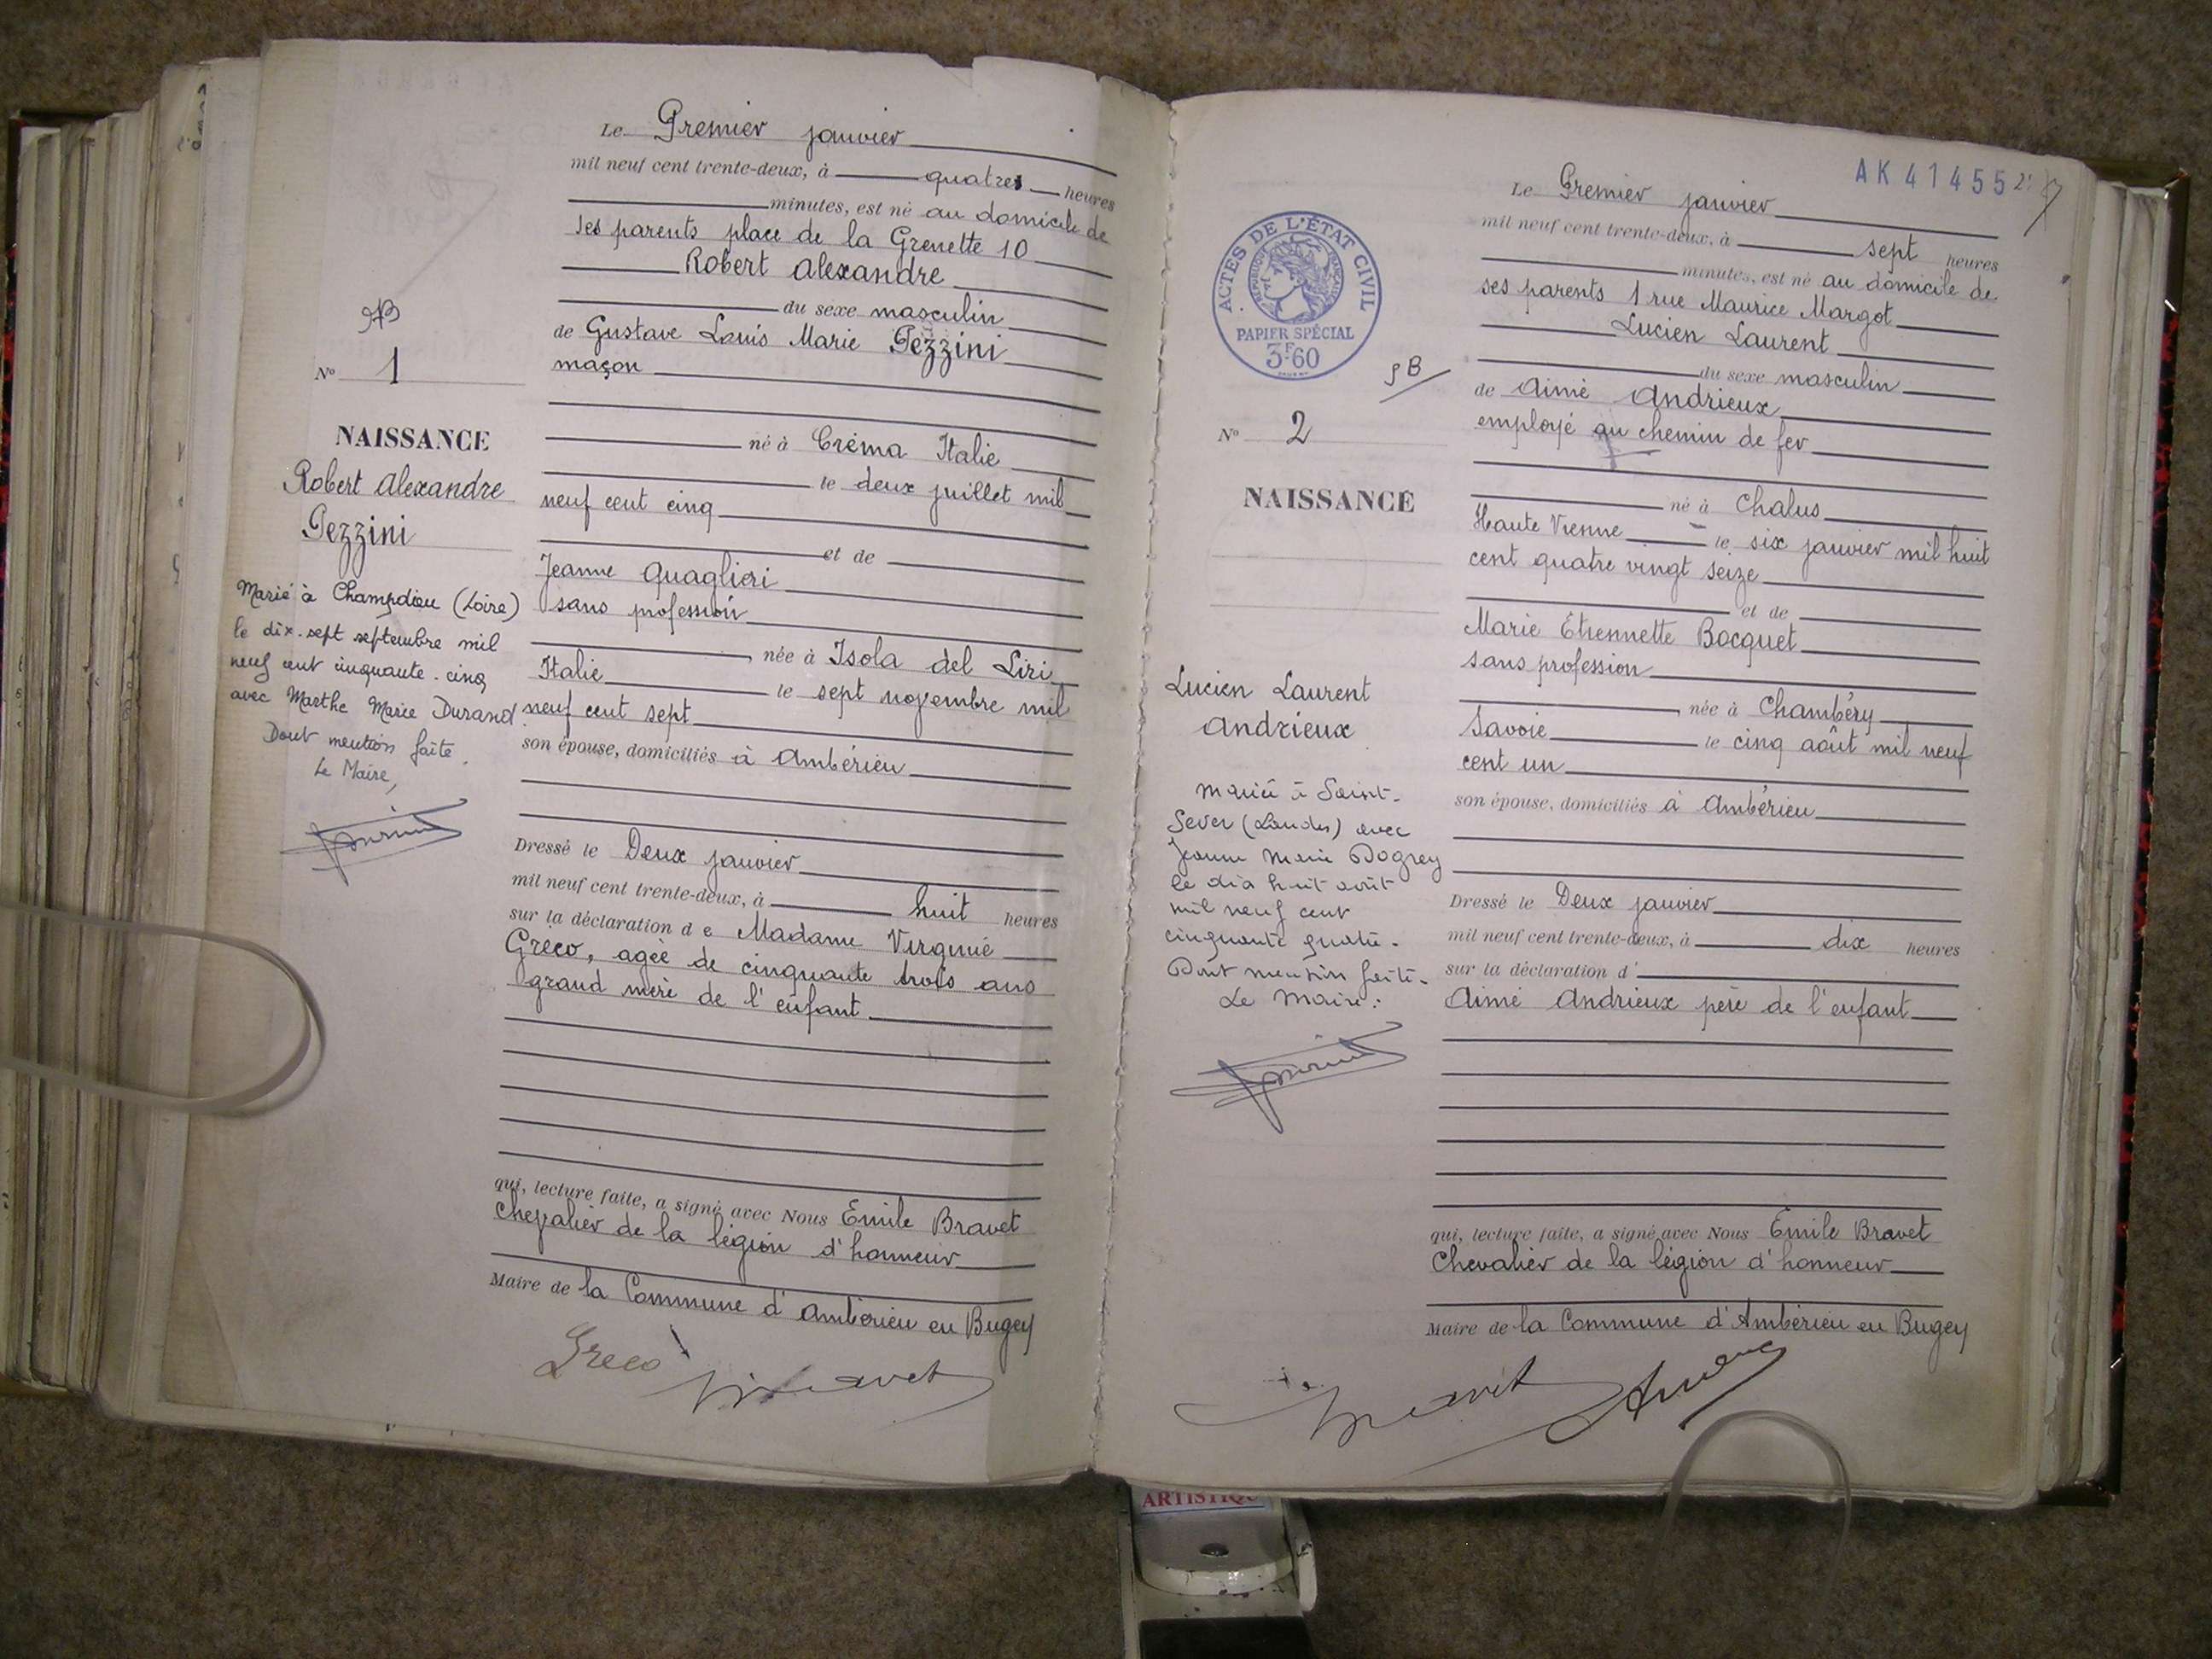 Le Premier janvier
mil neuf cent trente-deux, à quatres heures
minutes, est né au domicile de
ses parents place de la Grenette 10
Robert Alexandre
du sexe masculin
de Gustave Louis Marie Pezzini
maçon
né à Créma Italie
le deux juillet mil
neuf cent cinq
et de
Jeanne Quaglieri
sans profession
née à Isola del Liri
Italie le sept novembre mil
neuf cent sept
son épouse, domiciliés à Ambérieu
Dressé le Deux janvier
mil neuf cent trente-deux, à huit heures
sur la déclaration de Madame Virginie
Gréco, agée de cinquante trois ans
grand mère de l'enfant
qui, lecture faite, a signé avec Nous Emile Bravet
Chevalier de la légion d'honneur
Maire de la Commune d'Ambérieu en Bugey
Greco
Bravet
N° 1
NAISSANCE
Robert Alexandre
Pezzini
Marié à Champdieu (Loire)
le dix-sept septembre mil
neuf cent cinquante-cinq
avec Marthe Marie Durand
Dont mention faite.
Le Maire,
AK 41455
Le Premier janvier
mil neuf cent trente-deux, à sept heures
minutes, est né au domicile de
ses parents 1 rue Maurice Margot
Lucien Laurent
du sexe masculin
de Aimé Andrieux
employé au chemin de fer
né à Chalus
Haute Vienne le six janvier mil huit
cent quatre vingt seize
et de
Marie Etiennette Bocquet
sans profession
née à Chambéry
Savoie le cinq août mil neuf
cent un
son épouse, domiciliés à Ambérieu
Dressé le Deux janvier
mil neuf cent trente-deux, à dix heures
sur la déclaration d'
Aimé Andrieux père de l'enfant
qui, lecture faite, a signé avec Nous Emile Bravet
Chevalier de la légion d'honneur
Maire de la Commune d'Ambérieu en Bugey
Bravet
ACTES DE L'ÉTAT CIVIL
RÉPUBLIQUE FRANÇAISE
PAPIER SPÉCIAL
3F60
N° 2
NAISSANCE
Lucien Laurent
Andrieux
Marié à Saint-
Sever (Landes) avec
Jeanne Marie Dogrey
le dix huit août
mil neuf cent
cinquante quatre.
Dont mention faite.
Le Maire:
ARTISTIQU